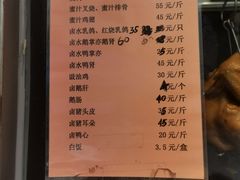 蜜汁叉烧、蜜汁排骨 55元/斤
蜜汁鸡翅 45元/斤
卤水乳鸽、红烧乳鸽 35元/只
卤水鹅掌亦鹅肾 60元/斤
卤水鸭掌亦 元/斤
卤水鸭肾 45元/斤
豉油鸡 30元/斤
卤鹅肝 元/个
鹅肠 40元/斤
卤猪头皮 35元/斤
卤猪耳朵 45元/斤
卤鸭心 20元/斤
白饭 3.5元/盒